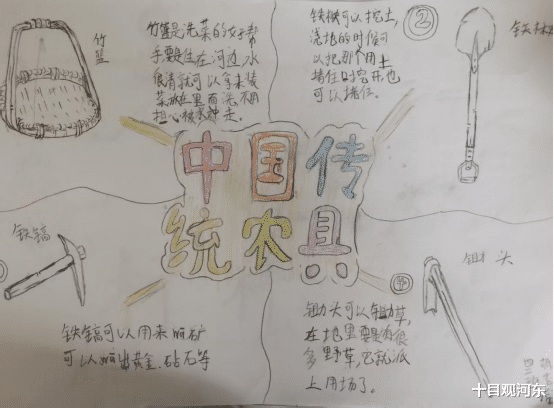 竹
篮
竹篮是洗菜的好帮
手要是住在河边水
很清就可以拿来装
菜放在里面洗不用
担心被水冲走。
铁锨可以挖土,
浇地的时候可
以把那个用土
堵住时它开也
可以堵住。
②
铁
中国传
统农具
铁镐
铁镐可以用来
矿
可以
黄金、钻石等
锄头
锄头可以锄草,
在地里要是有很
多野草,它就派
上用场了。
十目观河东